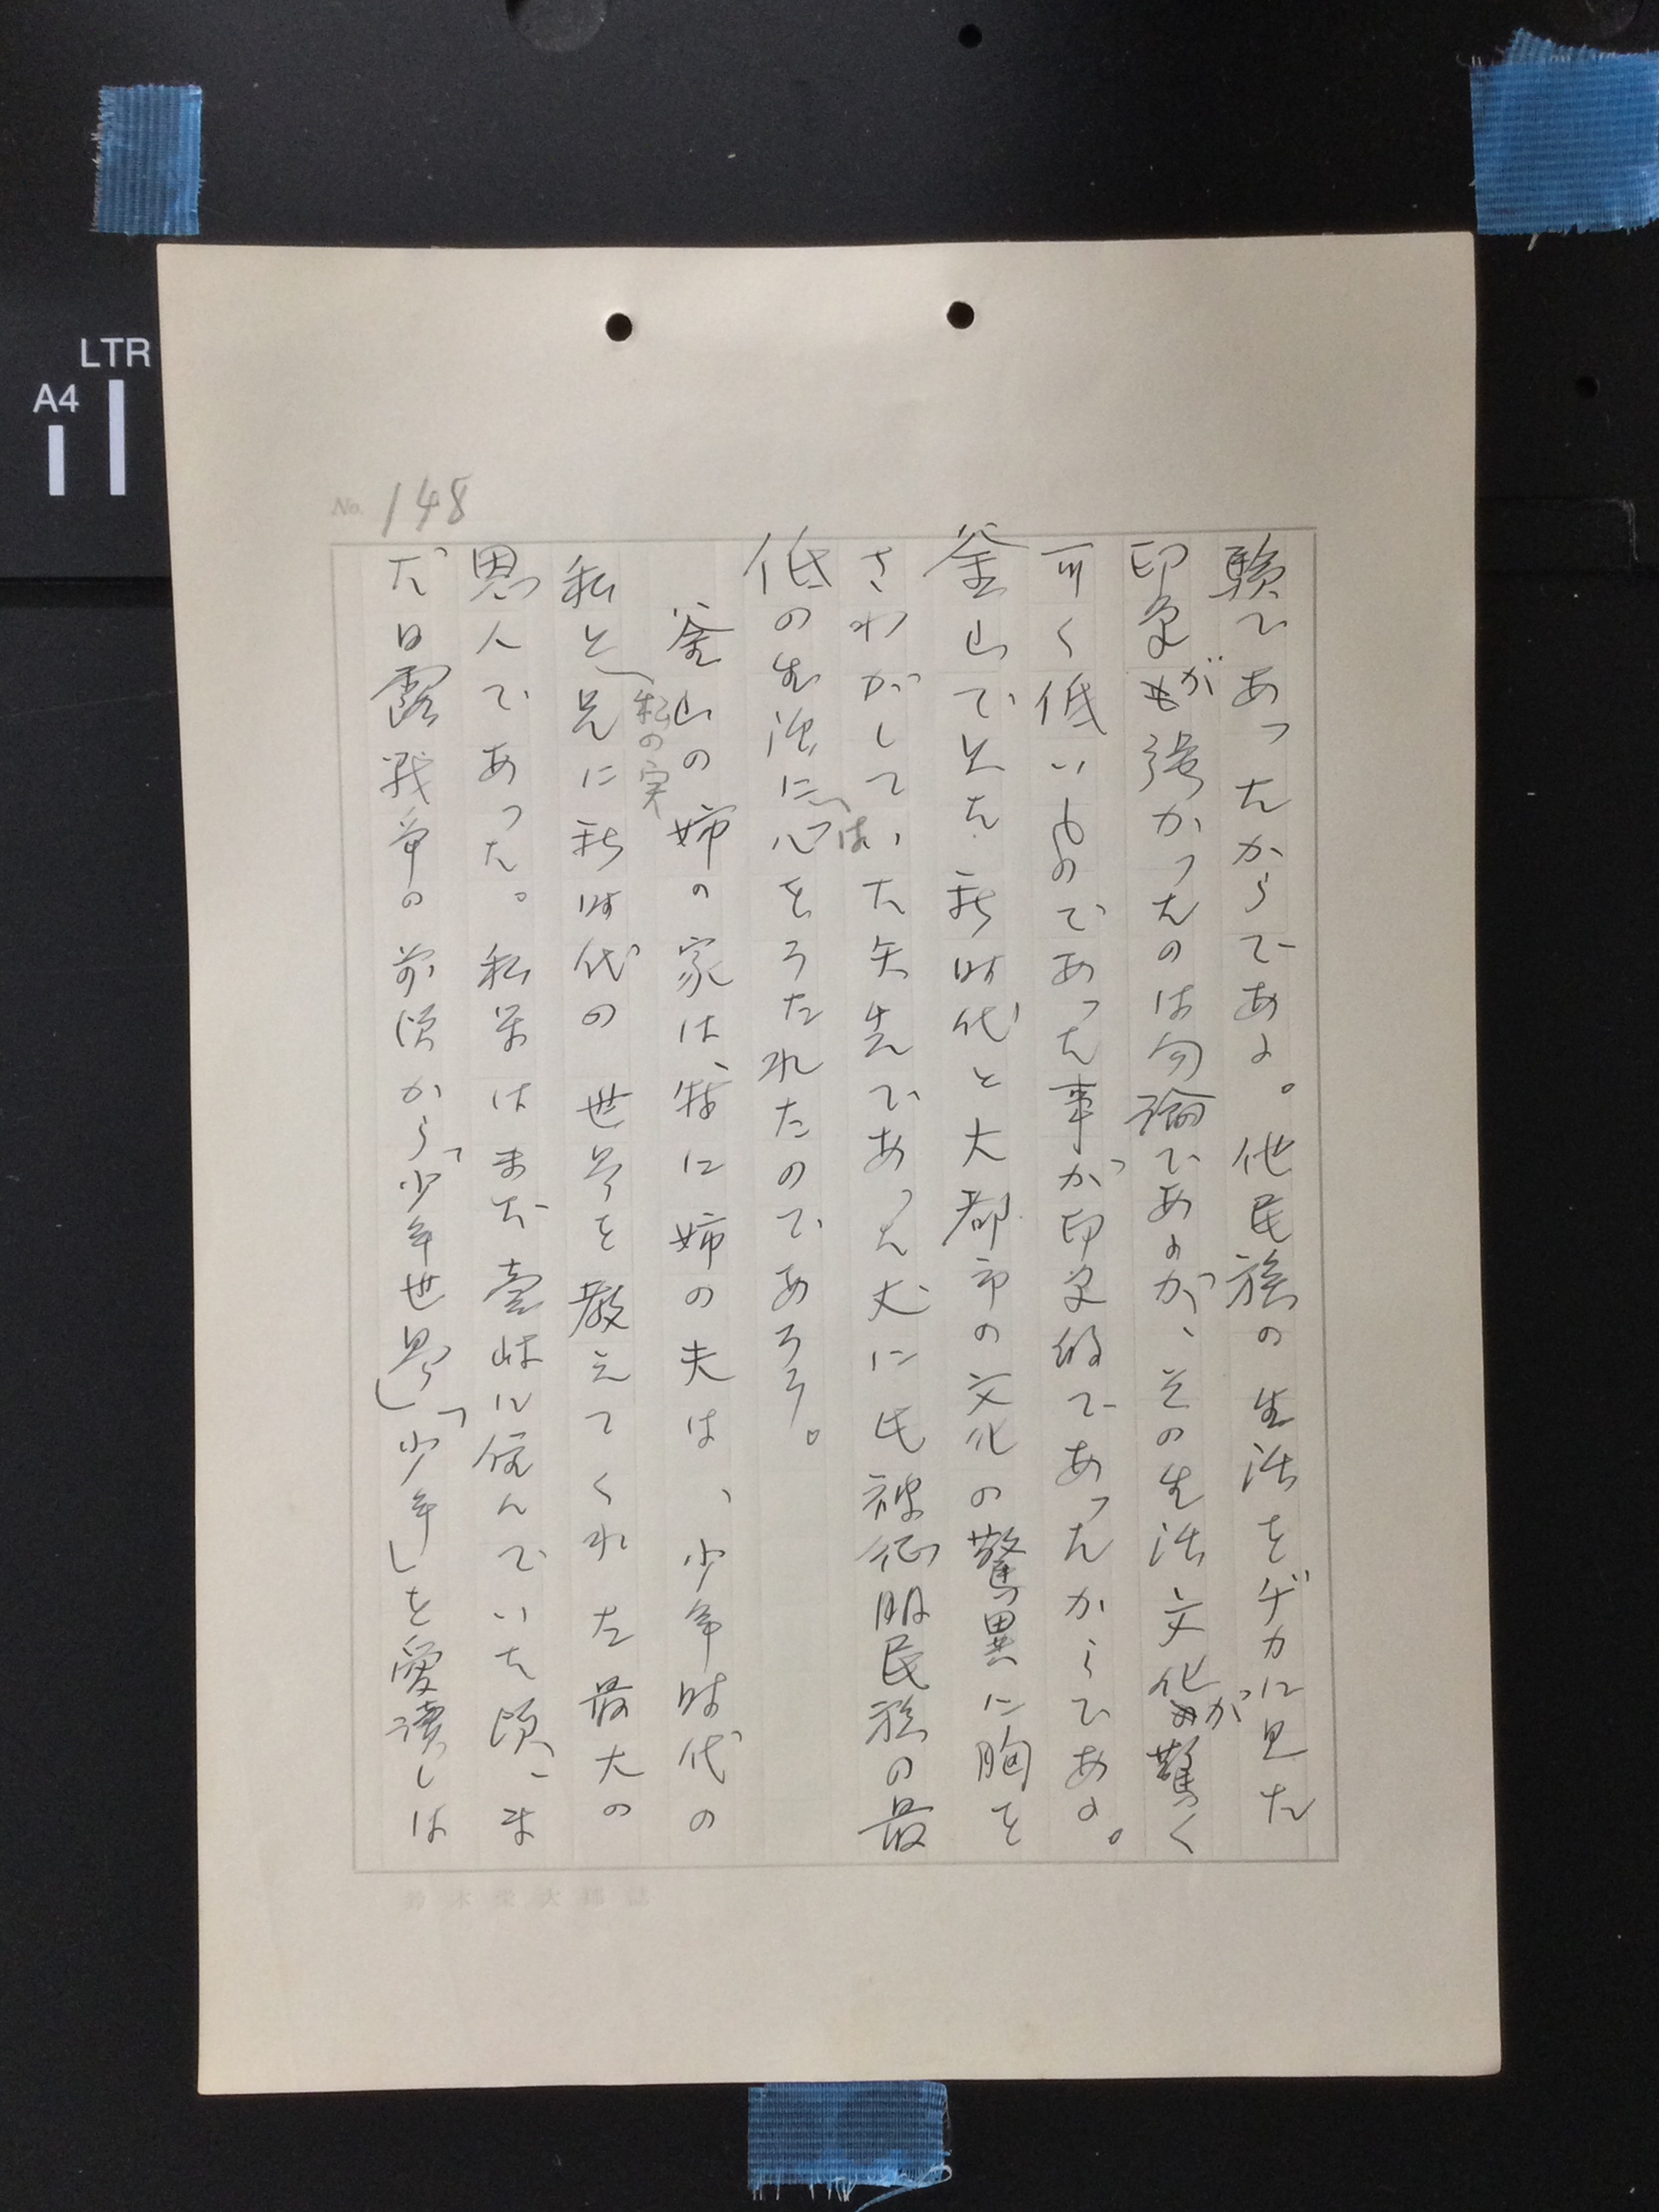 LTR
A4
No. 148
験であったからである。他民族の生活をヂカに見た
印象が強かったのは勿論であるが、その生活文化が驚く
可く低いものであった事が印象的であったからである。
釜山で見た新時代と大都市の文化の驚異に胸を
さわがしていた矢先であった丈に被征服民族の最
低の生活には心をうたれたのであろう。
釜山の姉の家は、特に姉の夫は、少年時代の
私と私の実兄に新時代の世界を教えてくれた最大の
恩人であった。私等はまだ壱岐に住んでいた頃、ま
だ日露戦争の前頃から「少年世界」「少年」を愛読しは
鈴木栄太郎誌